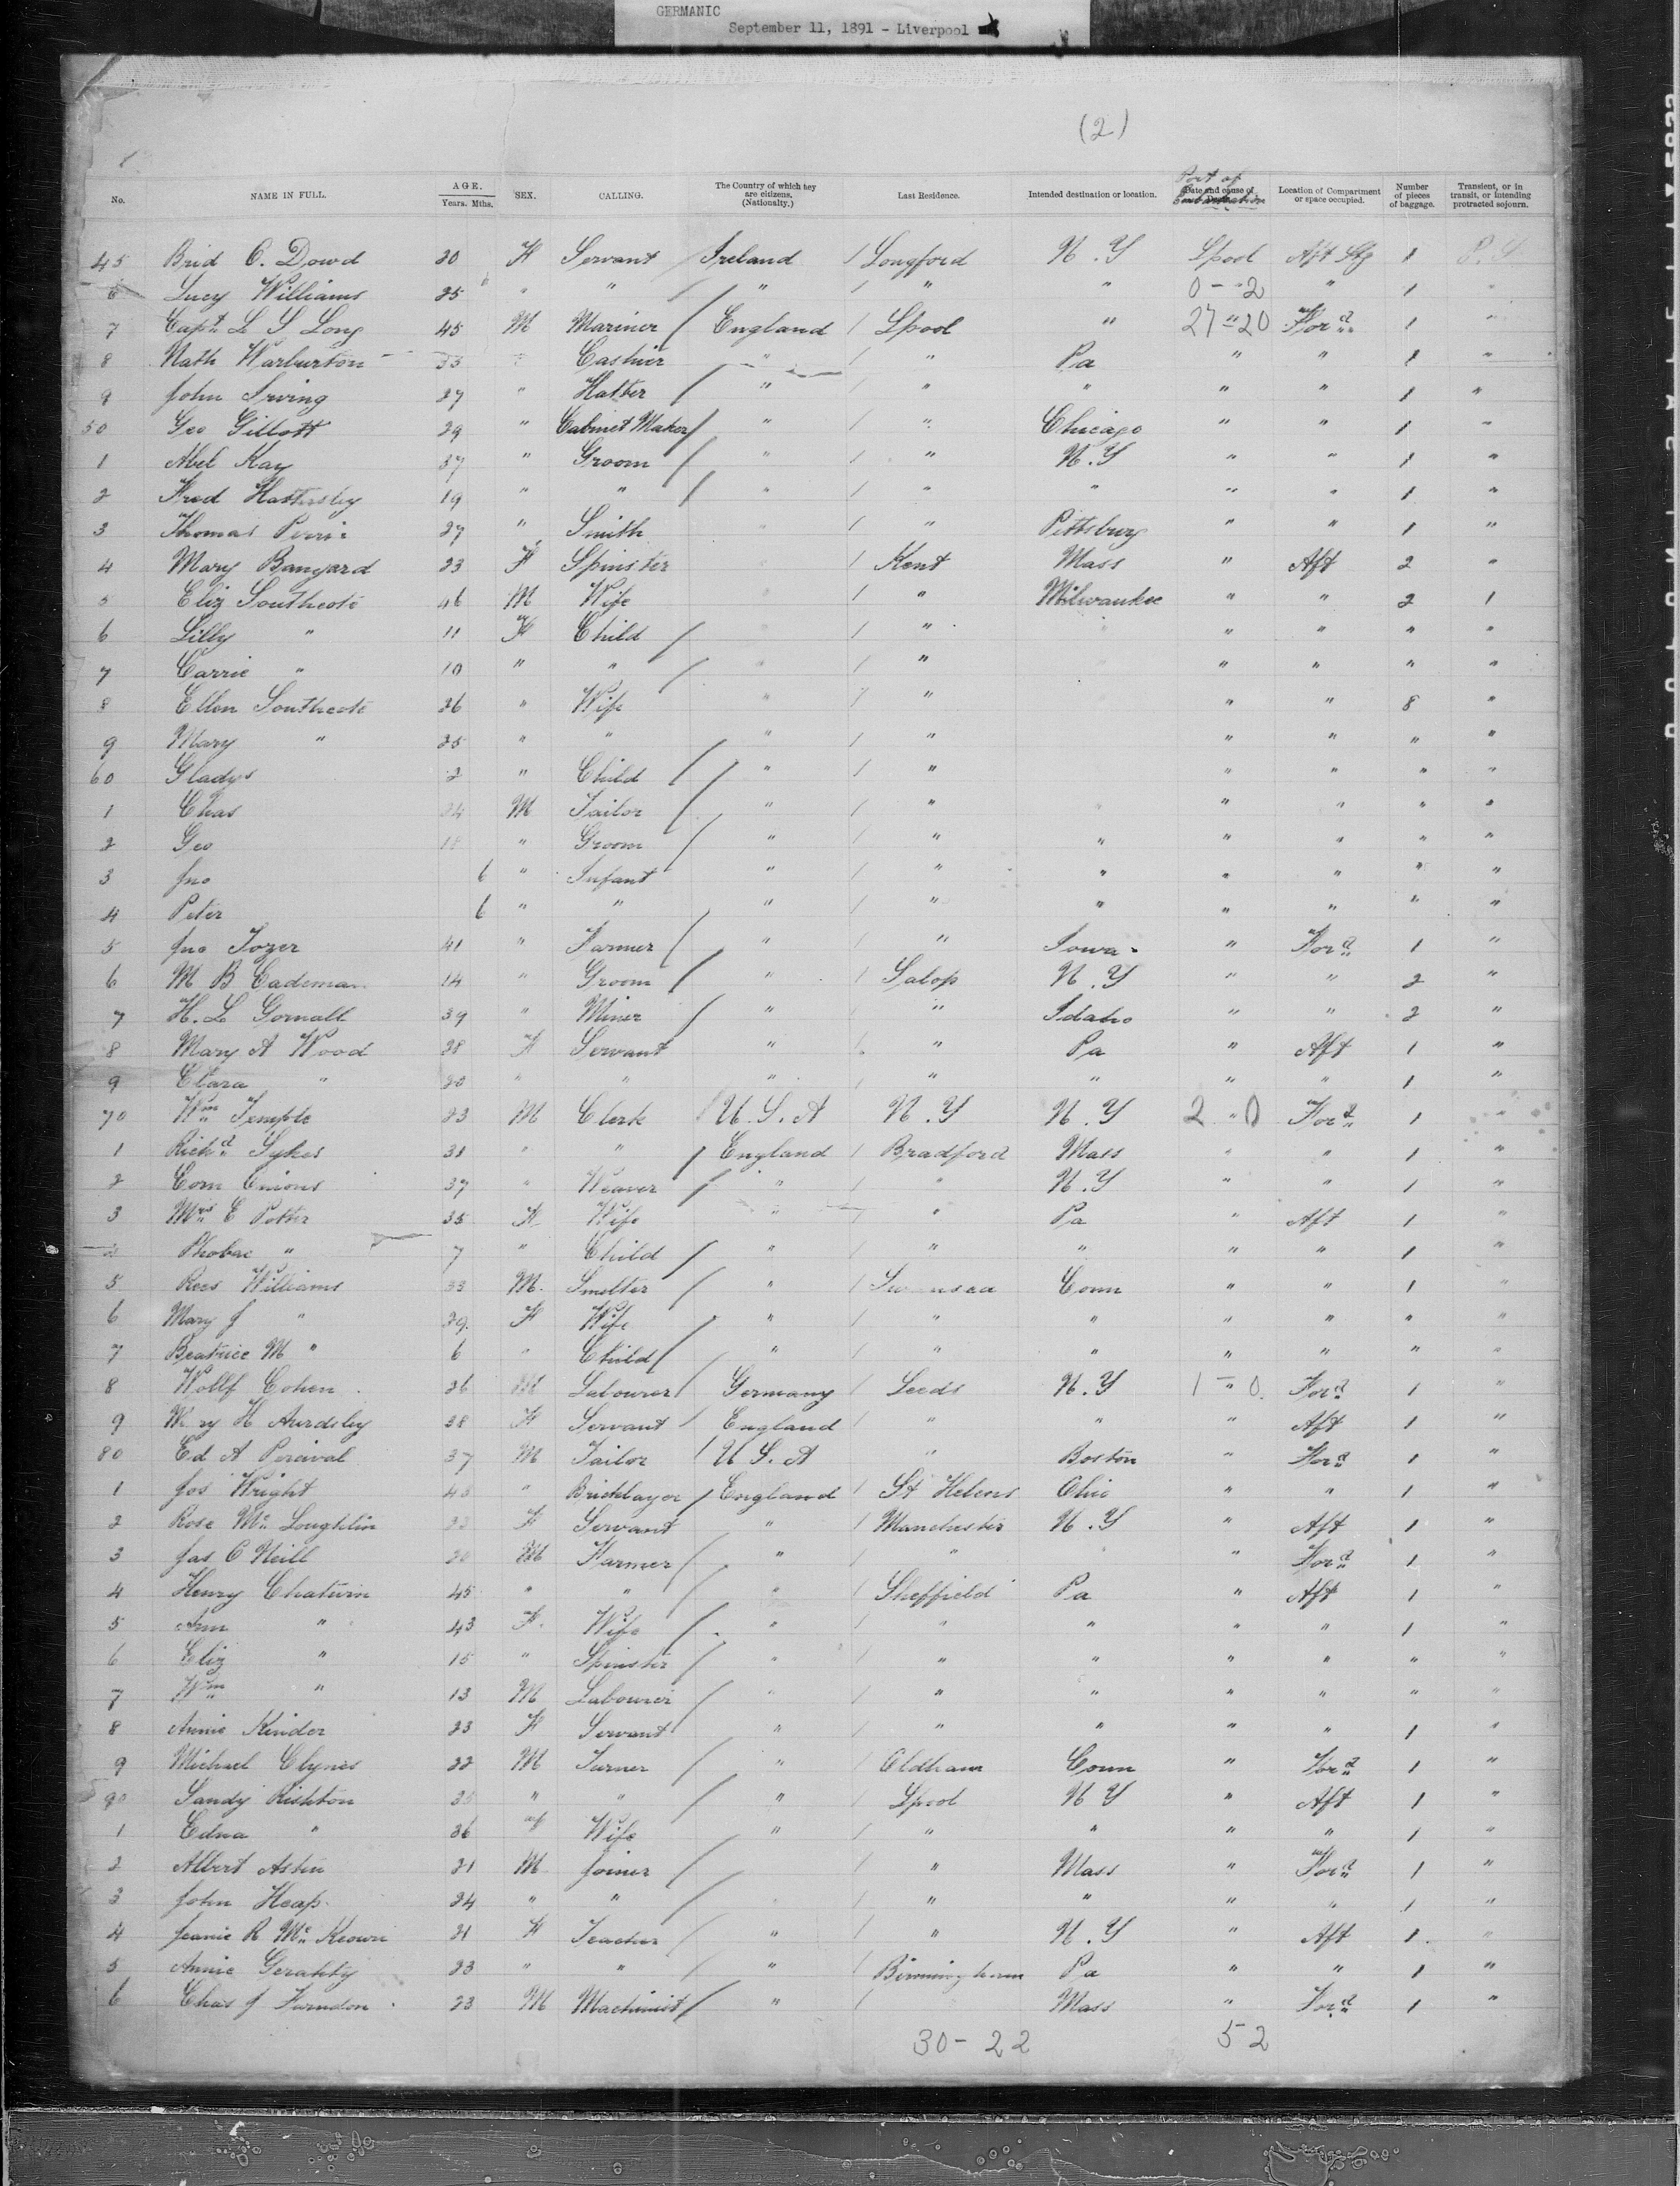 GERMANIC
September 11, 1891 - Liverpool
(2)
No. NAME IN FULL. AGE. Years. Mths. SEX. CALLING. The Country of which they are citizens. (Nationality.) Last Residence. Intended destination or location. Port of Embarkation Date and cause of Location of Compartment or space occupied. Number of pieces of baggage. Transient, or in transit, or intending protracted sojourn.
45 Brid O. Dowd 20 F Servant Ireland / Longford N.Y Lpool Aft Stg 1 P.S
6 Lucy Williams 25 " " / " / " " 0 - 2 " 1 "
7 Capt. L S Long 45 M Mariner / England / Lpool " 27 - 20 For'd 1 "
8 Nath Warburton 33 " Cashier " / " Pa " " 1 "
9 John Irving 27 " Hatter / " / " " " " 1 "
50 Geo Gillott 29 " Cabinet Maker / " / " Chicago " " 1 "
1 Abel Kay 37 " Groom / " / " N.Y " " 1 "
2 Fred Hattersley 19 " " / " / " " " " 1 "
3 Thomas 27 " Smith " / " Pittsburg " " 1 "
4 Mary Banyard 23 F Spinster " / Kent Mass " Aft 2 "
5 Eliz Southcote 46 M Wife " / " Milwaukee " " 2 1
6 Lilly " 11 F Child / " / " " " " " "
7 Carrie " 10 " " / " / " " " " "
8 Ellen Southcote 26 " Wife " / " " " 8 "
9 Mary " 25 " " " / " " " " "
60 Gladys 2 " Child / / " / " " " " "
1 Chas 24 M Tailor / " / " " " " " "
2 Geo 18 " Groom / " / " " " " " "
3 Jno 6 " Infant " / " " " " " "
4 Peter 6 " " " / " " " " " "
5 Jno Tozer 41 " Farmer / " / " Iowa " For'd 1 "
6 M B Cademan 14 " Groom / " / Salop N.Y " " 2 "
7 H. L Gornall 39 " Miner / " / " Idaho " " 2 "
8 Mary A Wood 38 F Servant " " Pa " Aft 1 "
9 Clara " 20 " " " / " " " " 1 "
70 Wm Temple 23 M Clerk / U.S.A N.Y N.Y 2 " 0 For'd 1 "
1 Rich'd Sykes 31 " " / England / Bradford Mass " " 1 "
2 Corn Onions 37 " Weaver / " / " N.Y " " 1 "
3 Mrs E Potter 35 F Wife " / " Pa " Aft 1 "
Phobae " 7 " Child / " / " " " " 1 "
5 Rees Williams 33 M. Smelter / " / Swansea Conn " " 1 "
6 Mary J " 29. F Wife / " / " " " " " "
7 Beatrice M " 6 " Child / " / " " " " " "
8 Wollf Cohen 26 M Labourer / Germany / Leeds N.Y 1 " 0 For'd 1 "
9 Mary H 38 F Servant / England " " " Aft 1 "
80 Ed A Percival 37 M Tailor / U.S.A " Boston " For'd 1 "
1 Jos Wright 43 " Bricklayer / England / St Helens Ohio " " 1 "
2 Rose Mc Loughlin 22 F Servant " / Manchester N.Y " Aft 1 "
3 Jas O Neill 20 M Farmer / " / " " " For'd 1 "
4 Henry Chaturin 45 " " / " / Sheffield Pa " Aft 1 "
5 Ann " 43 F. Wife / " / " " " " 1 "
6 Eliz " 15 " Spinster / " / " " " " " "
7 Wm " 13 M Labourer / " / " " " " " "
8 Annie Kinder 23 F Servant " / " " " " 1 "
9 Michael Clynes 22 M Turner / " / Oldham Conn " For'd 1 "
90 Sandy Rishton 35 " " / " / Lpool N Y " Aft 1 "
1 Edna " 36 F Wife / " / " " " " 1 "
2 Albert Astin 21 M Joiner / / " Mass " For'd 1 "
3 John Heap 24 " " / " / " " " " 1 "
4 Jeanie R Mc Keown 21 F Teacher / " / " N.Y " Aft 1 "
5 Annie Gerahty 23 " " / " / Birmingham Pa " " 1 "
6 Chas J Farndon 23 M Machinist / " / Mass " For'd 1 "
30 - 22 52